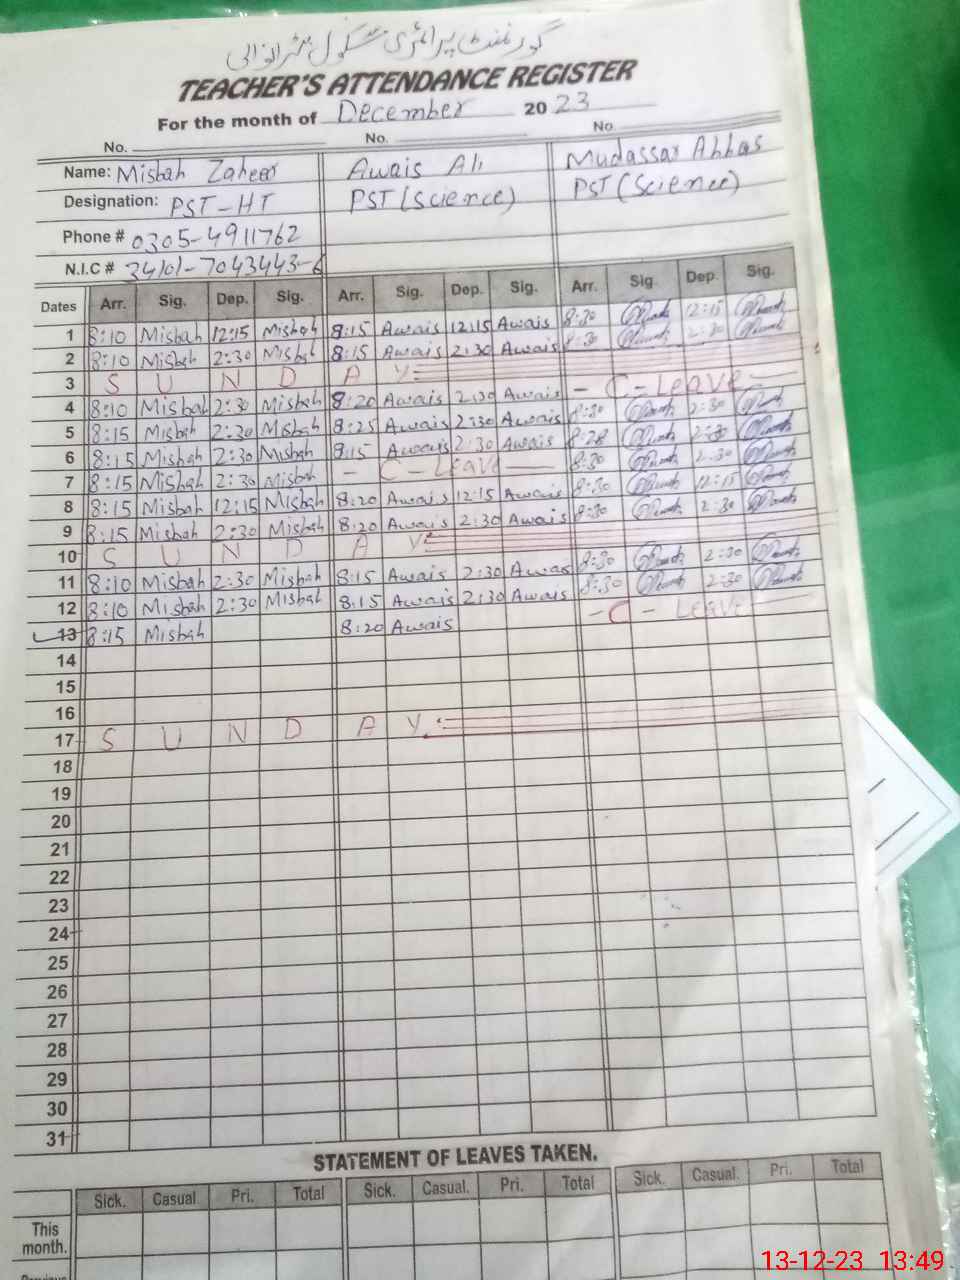 گورنمنٹ پرائمری سکول
TEACHER'S ATTENDANCE REGISTER
For the month of December 2023
No. No. No.
Name: Misbah Zaheer Awais Ali Mudassar Abbas
Designation: PST-HT PST (Science) PST (Science)
Phone # 0305-4911762
N.I.C # 34101-7043443-6
Dates Arr. Sig. Dep. Sig. Arr. Sig. Dep. Sig. Arr. Sig. Dep. Sig.
1 8:10 Misbah 12:15 Misbah 8:15 Awais 12:15 Awais 8:30 12:15
2 8:10 Misbah 2:30 Misbah 8:15 Awais 2:30 Awais 8:30 2:30
3 S U N D A Y
4 8:10 Misbah 2:30 Misbah 8:20 Awais 2:30 Awais - C - Leave -
5 8:15 Misbah 2:30 Misbah 8:25 Awais 2:30 Awais 8:30 2:30
6 8:15 Misbah 2:30 Misbah 8:15 Awais 2:30 Awais 8:28 2:30
7 8:15 Misbah 2:30 Misbah - C - Leave - 8:30 2:30
8 8:15 Misbah 12:15 Misbah 8:20 Awais 12:15 Awais 8:30 12:15
9 8:15 Misbah 2:30 Misbah 8:20 Awais 2:30 Awais 8:30 2:30
10 S U N D A Y
11 8:10 Misbah 2:30 Misbah 8:15 Awais 2:30 Awas 8:30 2:30
12 8:10 Misbah 2:30 Misbah 8:15 Awais 2:30 Awais 8:30 2:30
13 8:15 Misbah 8:20 Awais - C - Leave -
14
15
16
17 S U N D A Y
18
19
20
21
22
23
24
25
26
27
28
29
30
31
STATEMENT OF LEAVES TAKEN.
Sick. Casual Pri. Total Sick. Casual. Pri. Total Sick. Casual. Pri. Total
This
month.
13-12-23 13:49